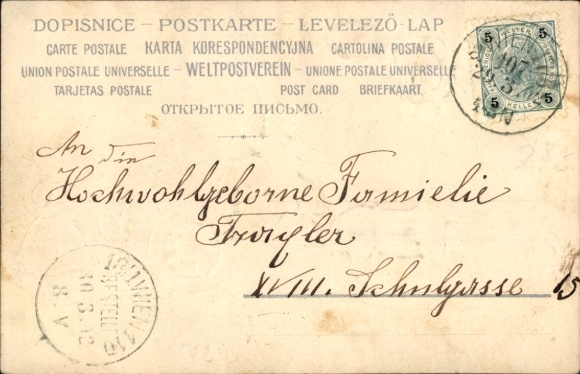 DOPISNICE – POSTKARTE – LEVELEZŐ-LAP
CARTE POSTALE KARTA KORESPONDENCYJNA CARTOLINA POSTALE
UNION POSTALE UNIVERSELLE – WELTPOSTVEREIN – UNIONE POSTALE UNIVERSELLE
TARJETAS POSTALE POST CARD BRIEFKAART
ОТКРЫТОЕ ПИСЬМО.
5 5
5 5
WIEN
An die
Hochwohlgeborne Famielie
XVIII. Schulgasse 15
WIEN 110
BESTELLT
30.3.02
8.V